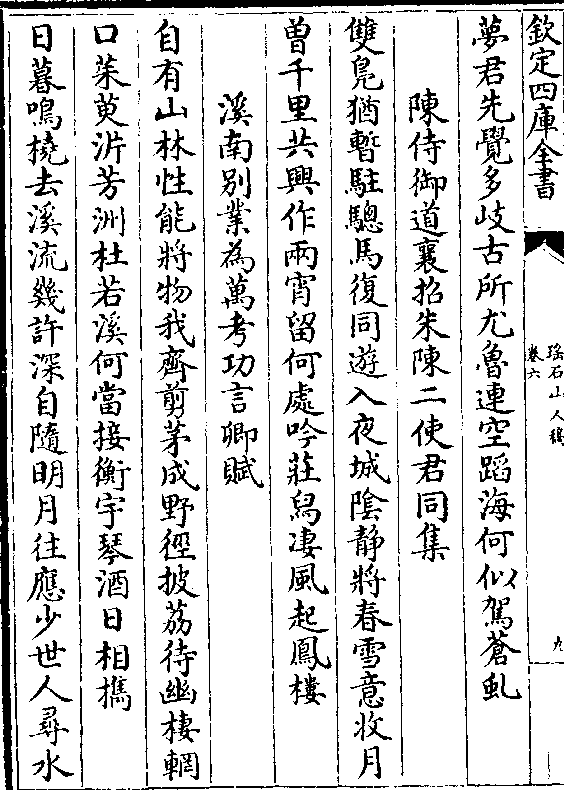 欽定四庫全書
瑤石山人稿
卷六
九
夢君先覺多岐古所尤魯連空蹈海何似駕蒼虬
陳侍御道襄招朱陳二使君同集
雙鳬猶暫駐驄馬復同遊入夜城陰靜將春雪意收月
曽千里共興作兩宵留何處吟莊舄凄風起鳳樓
溪南别業為萬考功言卿賦
自有山林性能將物我齊剪茅成野徑披荔待幽棲輞
口茱萸沜芳洲杜若溪何當接衡宇琴酒日相攜
日暮鳴橈去溪流幾許深自隨明月往應少世人尋水